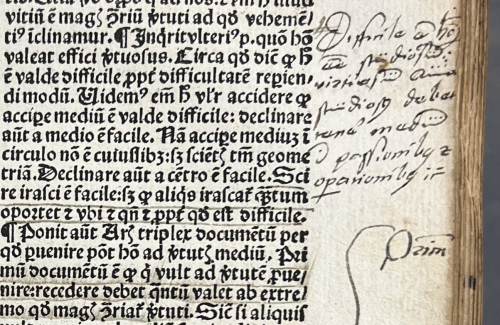 vitii ē magꝭ ꝯriū ꝟtuti ad qd̄ vehemē/
tiꝰ īclinamur. ¶ Inq̄rit vlteriꝰ p. quō hō
valeat effici ꝟtuosus. Circa qd̄ dic̄ ꝙ h̄
ē valde difficile ꝓpt̄ difficultatē reperien/
di modū. Uidemꝰ em̄ h̄ vl'r accidere ꝙ
accipe mediū ē valde difficile: declinare
aūt a medio ē facile. Nā accipe mediuꝫ ī
circulo nō ē cuiuslibꝫ: sꝫ sciēt̄ tm̄ geome
triā. Declinare aūt a cētro ē facile. Sci
re irasci ē facile: sꝫ ꝙ aliq̄s irascat᷑ q̄ꝫtum
oportet ⁊ vbi ⁊ qn̄ ⁊ ꝓpt̄ qd̄ est difficile.
¶ Ponit aūt Arꝭ triplex documētū per
qd̄ ꝑuenire pōt hō ad ꝟtutꝭ mediū. Pri
mū documētū ē ꝙ q̇ vult ad ꝟtutē ꝑue/
nire: recedere debet q̄ntū valet ab extre/
mo qd̄ magꝭ ꝯriaꝉ ꝟtuti. Sic̄ si aliquis
Difficile ē hō
studiosū
studiosꝰ debet
mediū
passionibꝫ ⁊
operationibꝫ
Primū